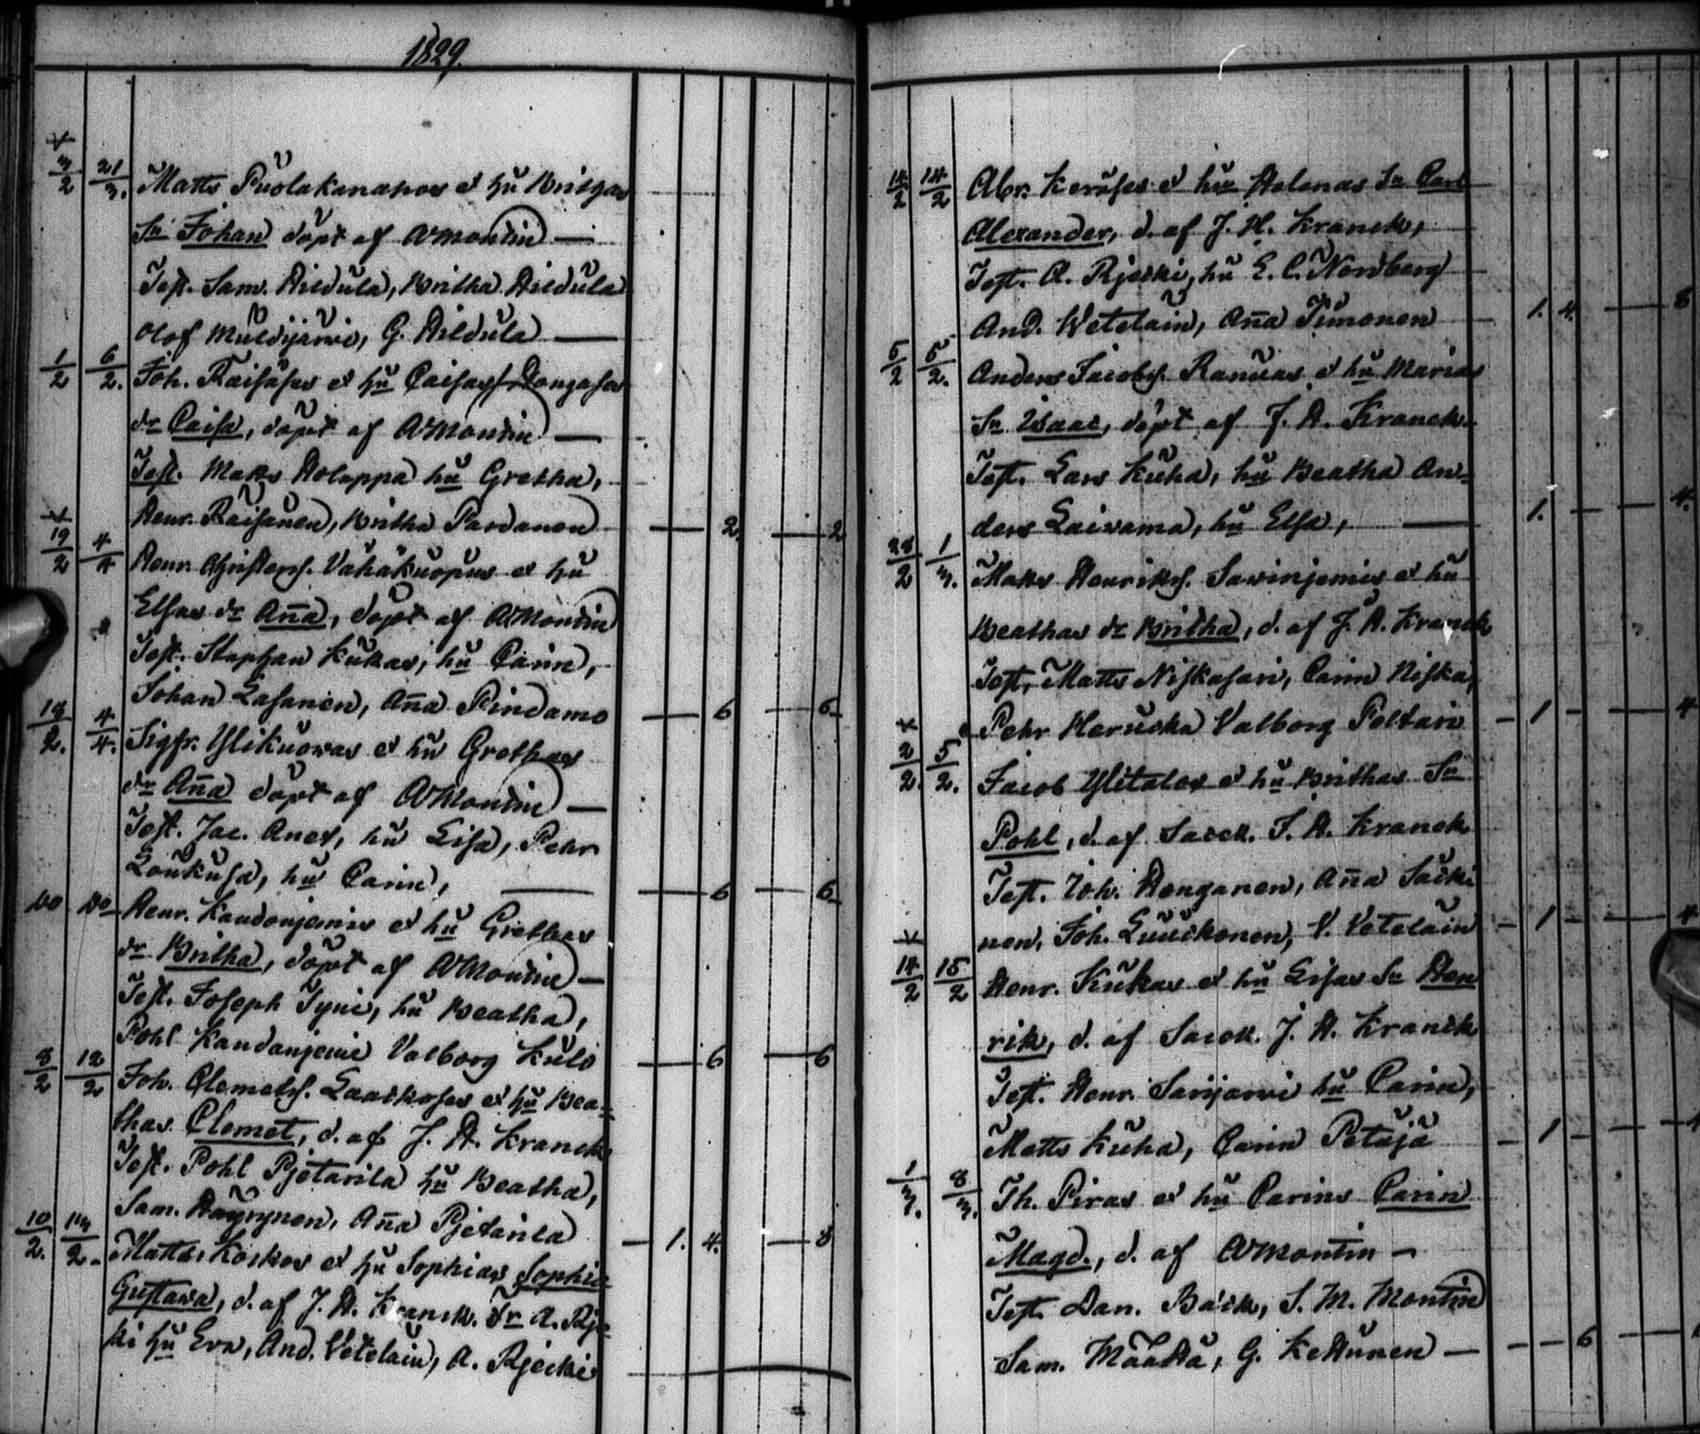 1829.
3/2 21/3. Matts Puolakanahos et hu Britgas
Sn Johan döpt af A Montin —
Test. Sam. Aildula, Britha Aildula
Olof Muldijärvi, G. Aildula —
1/2 6/2. Joh. Raisäses et hu Caisas f. Rongasa
dr Caisa, döpt af A Montin —
Test. Matts Holappa hu Gretha,
Henr. Räisänen, Britha Pardanen — 2. — 2
19/2 4/4 Henr. Christers. Vähäkuopus et hu
Elsas dr Aña, döpt af A Montin
Test. Staphan Kukas, hu Carin,
Johan Lasanen, Aña Pindamo — 6 — 6
18/2. 4/4. Sigfr. Ylikuovas et hu Grethas
dr Aña döpt af A Montin —
Test. Jac. Anes, hu Lisa, Pehr
Loukusa, hu Carin, — 6 — 6
Do Do Henr. Kandonjemis et hu Grethas
dr Britha, döpt af A Montin —
Test. Joseph Tyni, hu Beatha,
Pohl Kandanjemi Valborg Kulo — 6 — 6
8/2 12/2 Joh. Clemets. Laackoses et hu Bea-
thas Clemet, d. af J. H. Kranck
Test. Pohl Pjetarila hu Beatha,
Sam. Häyrynen, Aña Pjetarila — 1. 4. — 8
10/2. 14/2. Matts Koskos et hu Sophias Sophia
Gustava, d. af J. H. Kranck. Tr A. Rje-
ki hu Eva, And. Vetelain, A. Rjecki
14/2 14/2 Abr. Keroses et hu Helenas Sn Carl
Alexander, d. af J. H. Kranck,
Test. A. Rjecki, hu E. C. Nordberg
And. Wetelain, Aña Timonen 1. 4. — 8
5/2 5/2. Anders Jacobs. Ranuas et hu Marias
Sn Isaac, döpt af J. H. Kranck.
Test. Lars Kuha, hu Beatha An-
ders Laivama, hu Elsa, — 1. — 4.
28/2 1/3. Matts Henriks. Savinjemis et hu
Beathas dr Britha, d. af J. H. Kranck
Test. Matts Niskasari, Carin Niska,
Pehr Heruska Valborg Poltari — 1 — 4
2/2. 5/2. Jacob Ylitalos et hu Brithas Sn
Pohl, d. af Sacell. J. H. Kranck
Test. Joh. Honganen, Aña Säcki
nen, Joh. Luuckonen, V. Vetelain — 1 — 4
14/2 15/2 Henr. Kukas et hu Lisas Sn Hen
rik, d. af Sacell. J. H. Kranck
Test. Henr. Sarijarvi hu Carin,
Matts Kuha, Carin Petäjä — 1 — 4
1/3. 8/3. Th. Piras et hu Carins Carin
Magd., d. af A Montin —
Test. Dan. Bäck, S. M. Montin
Sam. Määttä, G. Kettunen — 6 —